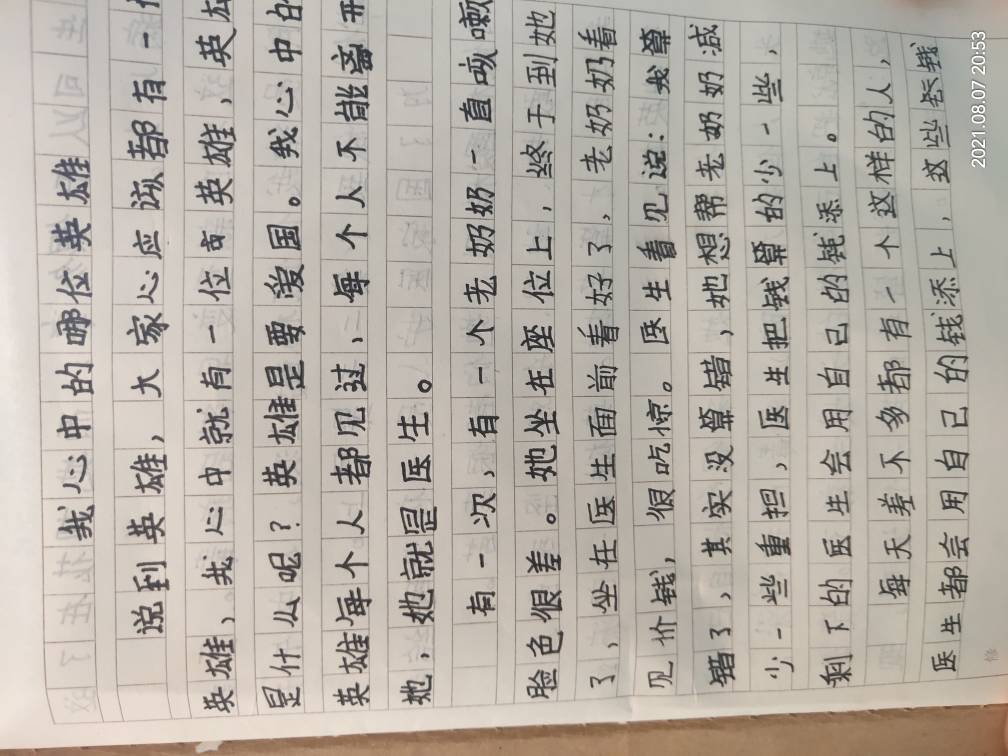 我心中的哪位英雄
说到英雄，大家心应该都有一
英雄，我心中就有一位英雄，英
是什么呢？英雄是要爱国。我心中的
英雄每个人都见过，每个人不能离开
她，她就是医生。
有一次，有一个老奶奶一直咳嗽
脸色很差。她坐在座位上，终于到她
了，坐在医生面前看好了，老奶奶看
见价钱，很吃惊。医生看见说：我算
错了，其实没算错，她想帮老奶奶减
少一些重担，医生把钱算的少一些，
剩下的医生会用自己的钱添上。
每天差不多都有一个这样的人，
医生都会用自己的钱添上，这些钱
2021.08.07 20:53